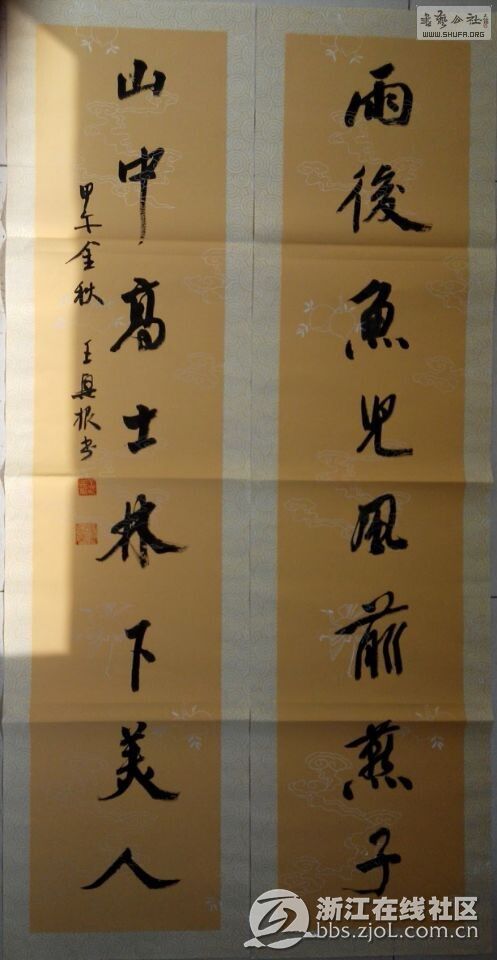 雨後魚児風前燕子
山中高士林下美人
甲午金秋 王興根书
书艺公社
WWW.SHUFA.ORG
浙江在线社区
bbs.zjol.com.cn